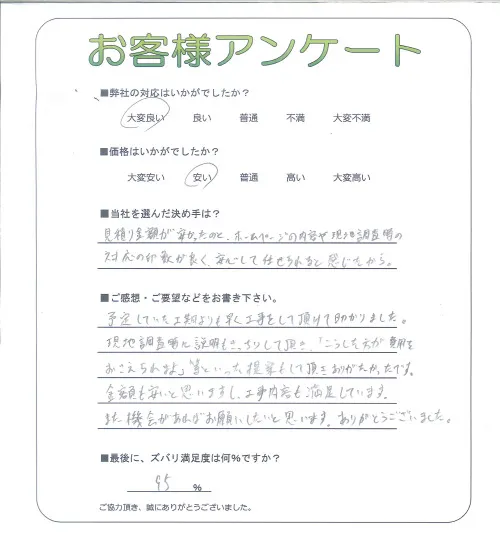 お客様アンケート
■弊社の対応はいかがでしたか？
大変良い 良い 普通 不満 大変不満
■価格はいかがでしたか？
大変安い 安い 普通 高い 大変高い
■当社を選んだ決め手は？
見積り金額が安かったのと、ホームページの内容や現地調査時の
対応の印象が良く、安心して任せられると感じたから。
■ご感想・ご要望などをお書き下さい。
予定していた工期よりも早く工事をして頂けて助かりました。
現地調査時に説明もきっちりして頂き、「こうした方が費用を
おさえられますよ」等といった提案もして頂きありがたかったです。
金額も安いと思いますし、工事内容も満足しています。
また機会があればお願いしたいと思います。ありがとうございました。
■最後に、ズバリ満足度は何%ですか？
95 %
ご協力頂き、誠にありがとうございました。